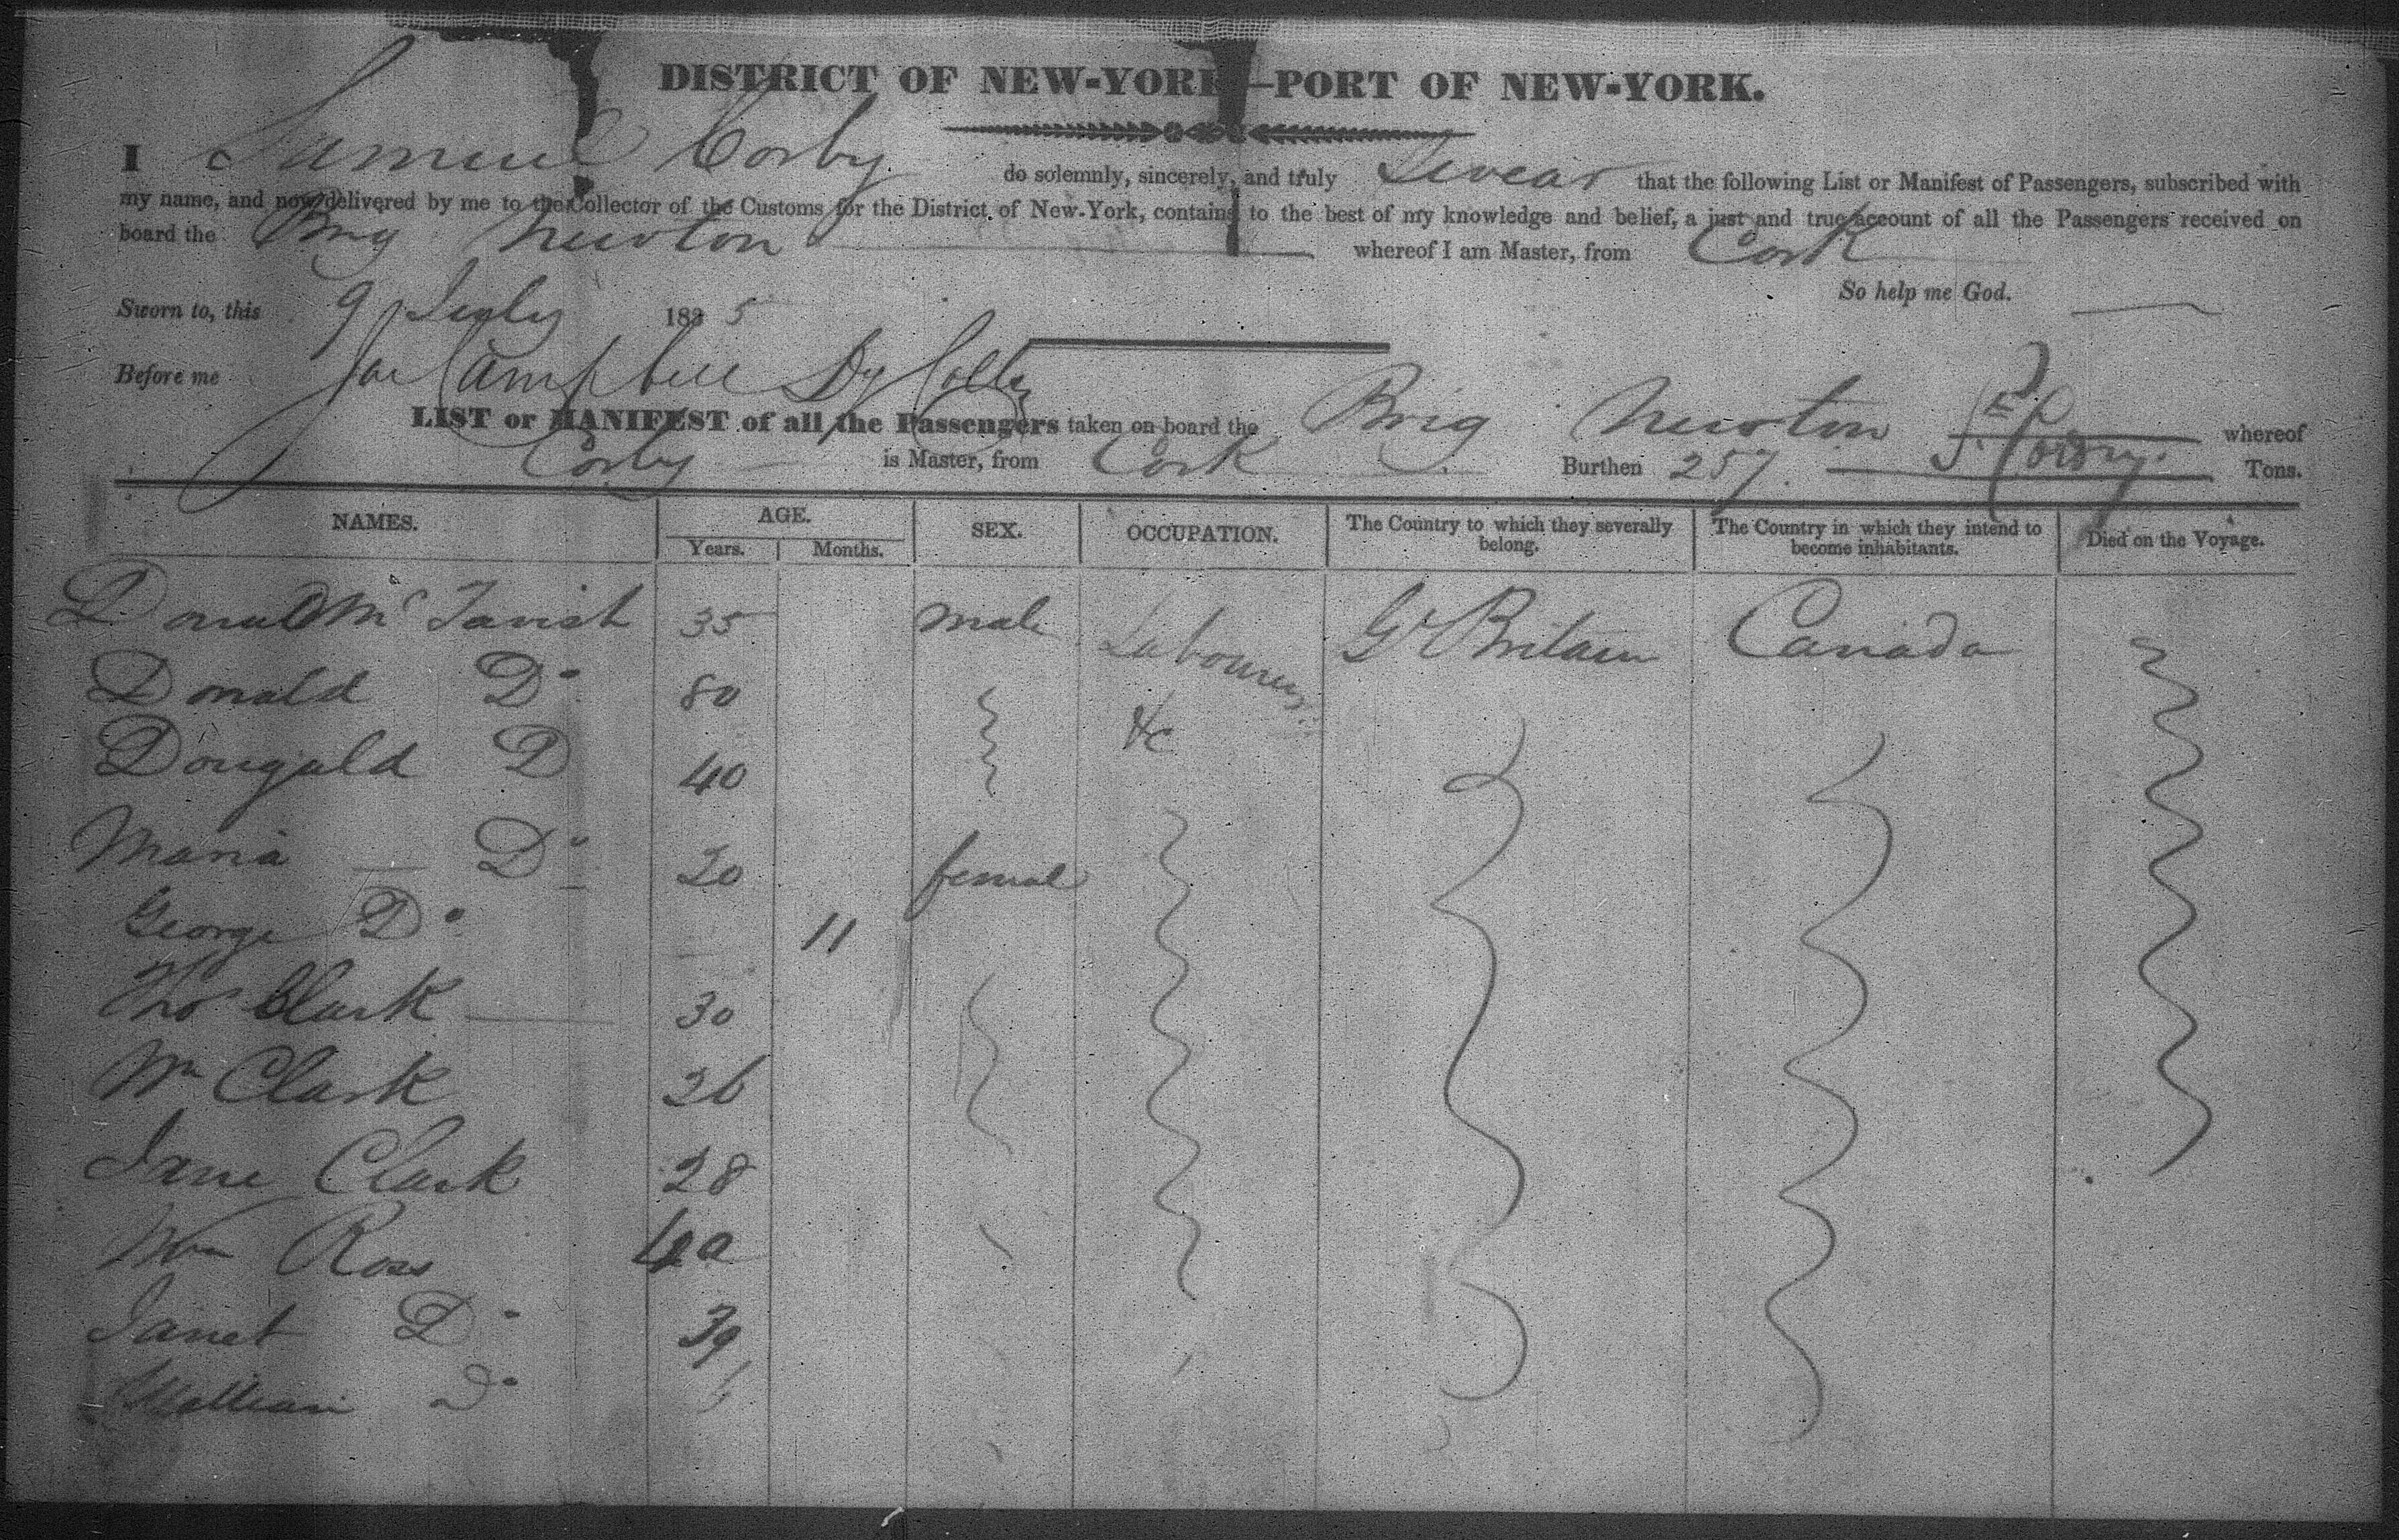 DISTRICT OF NEW-YORK—PORT OF NEW-YORK.
I Samuel Corby do solemnly, sincerely, and truly Swear that the following List or Manifest of Passengers, subscribed with
my name, and now delivered by me to the Collector of the Customs for the District of New-York, contains to the best of my knowledge and belief, a just and true account of all the Passengers received on
board the Brig Newton whereof I am Master, from Cork
So help me God.
Sworn to, this 9 July 1835
Before me Campbell Dy Colly
LIST or MANIFEST of all the Passengers taken on board the Brig Newton whereof
Corby is Master, from Cork Burthen 257 Tons.
NAMES. AGE. SEX. OCCUPATION. The Country to which they severally belong. The Country in which they intend to become inhabitants. Died on the Voyage.
Years. Months.
Donald Mc Tavish 35 male Labourers Gt Britain Canada
Donald Do 80 &c
Dougald D 40
Maria Do 20 female
George Do 11
Thos Clark 30
Wm Clark 26
Jane Clark 28
Wm Ross 40
Janet Do 39
William Do